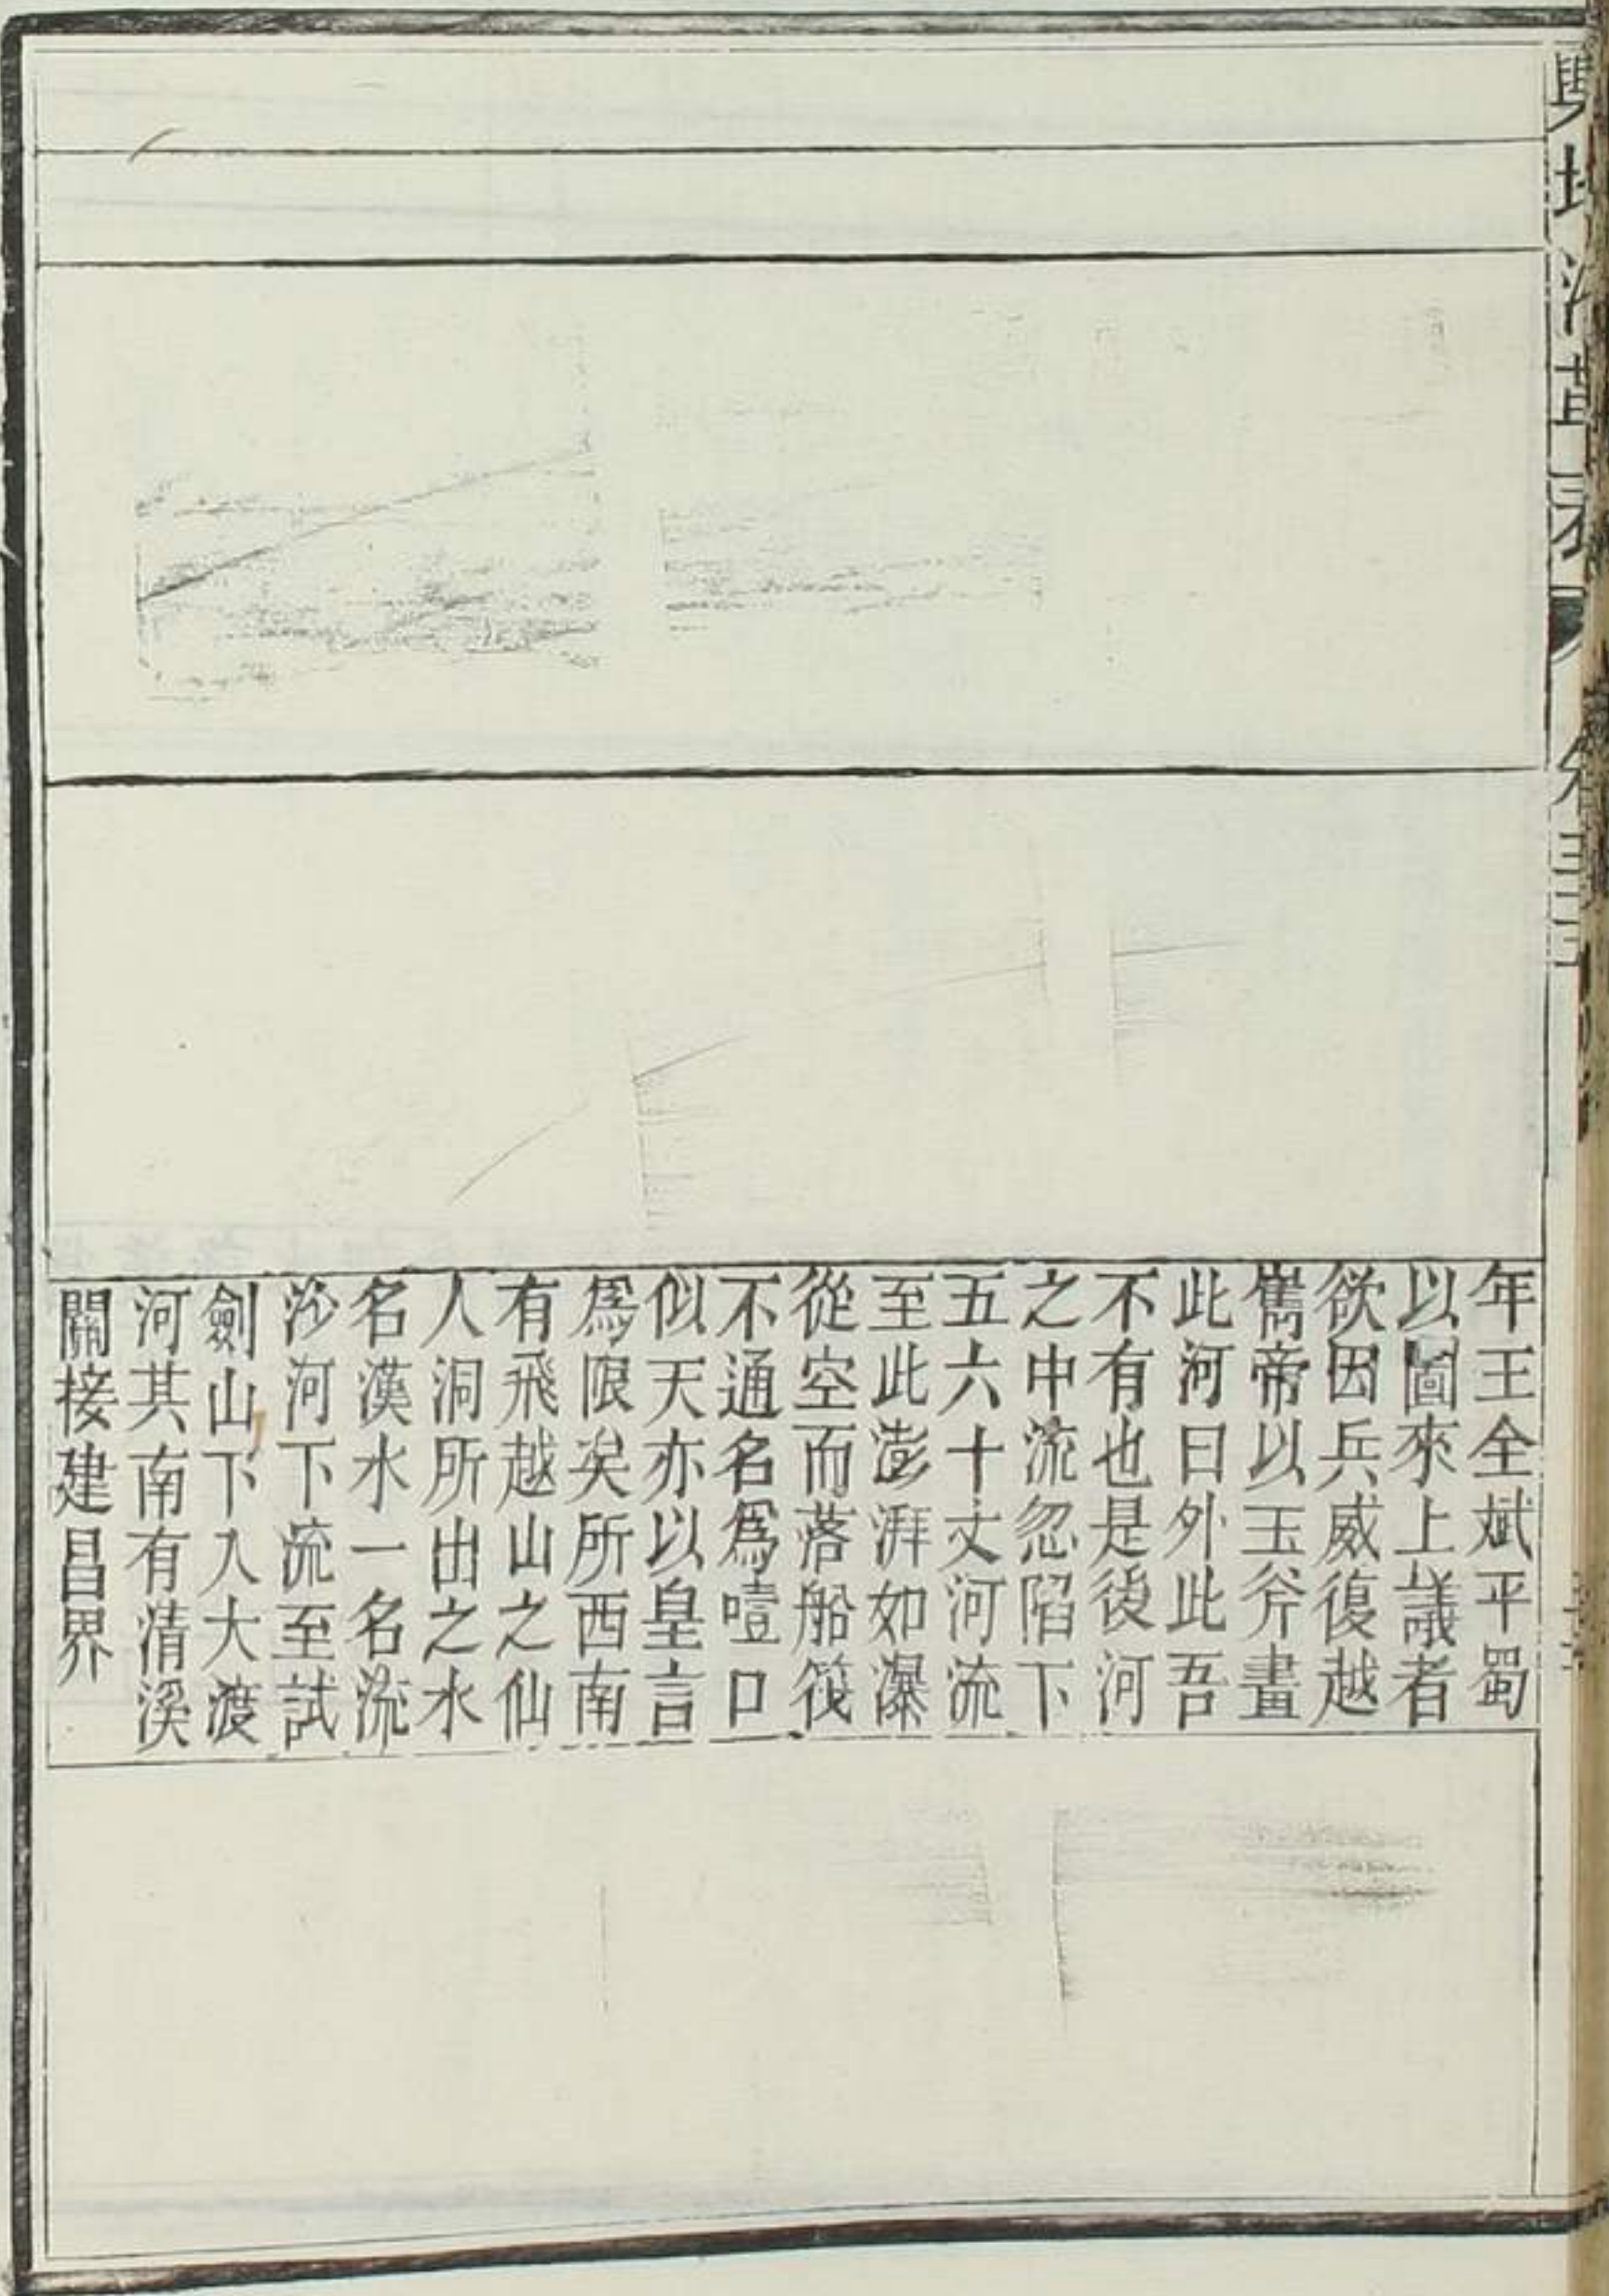 年王全斌平蜀
以圖來上議者
欲因兵威復越
雟帝以玉斧畫
此河曰外此吾
不有也是後河
之中流忽陷下
五六十丈河流
至此澎湃如瀑
從空而落船筏
不通名爲噎口
似天亦以皇言
爲限矣所西南
有飛越山之仙
人洞所出之水
名漢水一名流
沙河下流至試
劍山下入大渡
河其南有清溪
關接建昌界